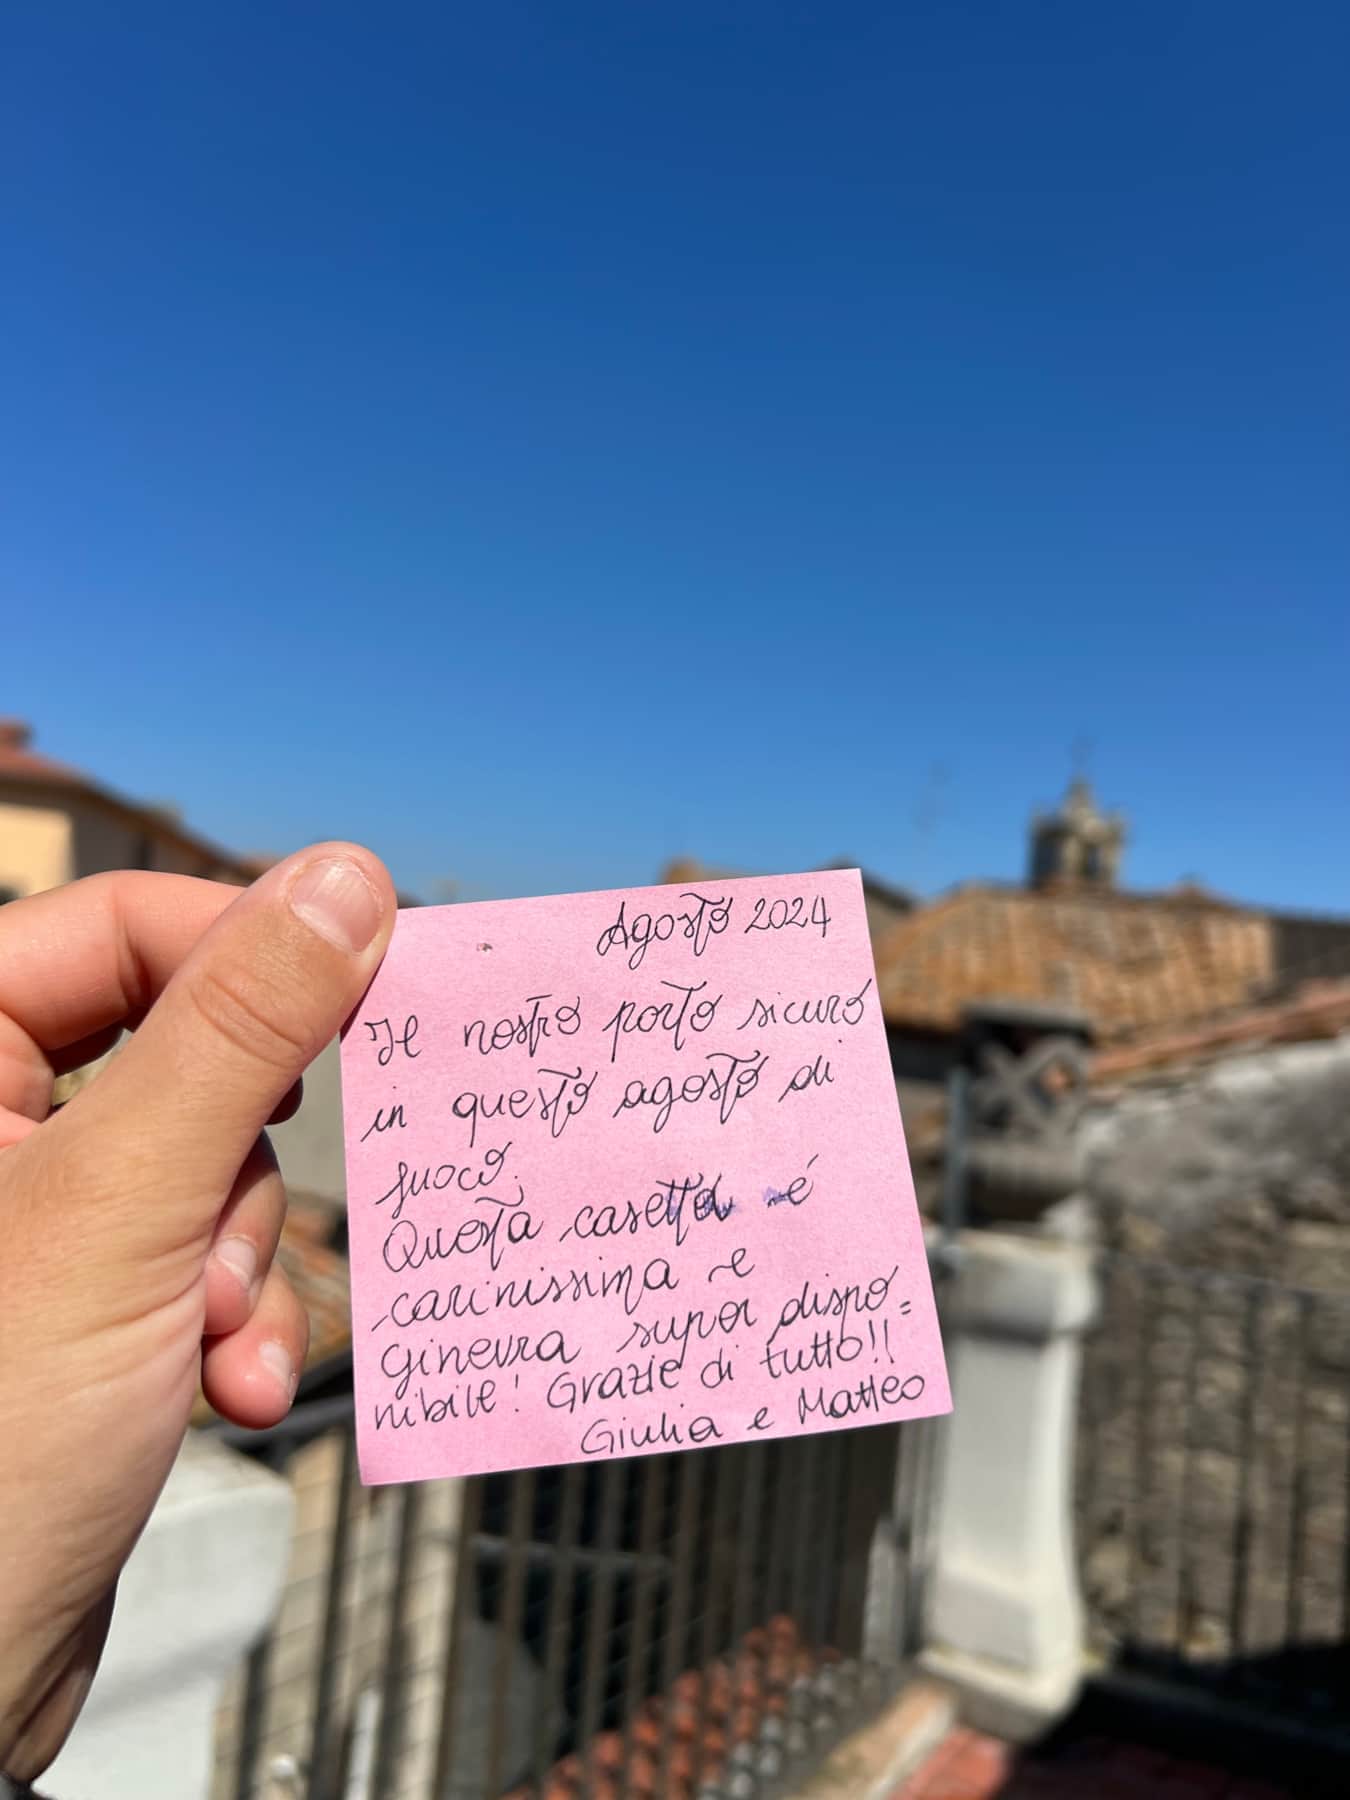 Agosto 2024
Il nostro porto sicuro
in questo agosto di
fuoco.
Questa casetta é
carinissima e
Ginevra super dispo=
nibile! Grazie di tutto!!
Giulia e Matteo